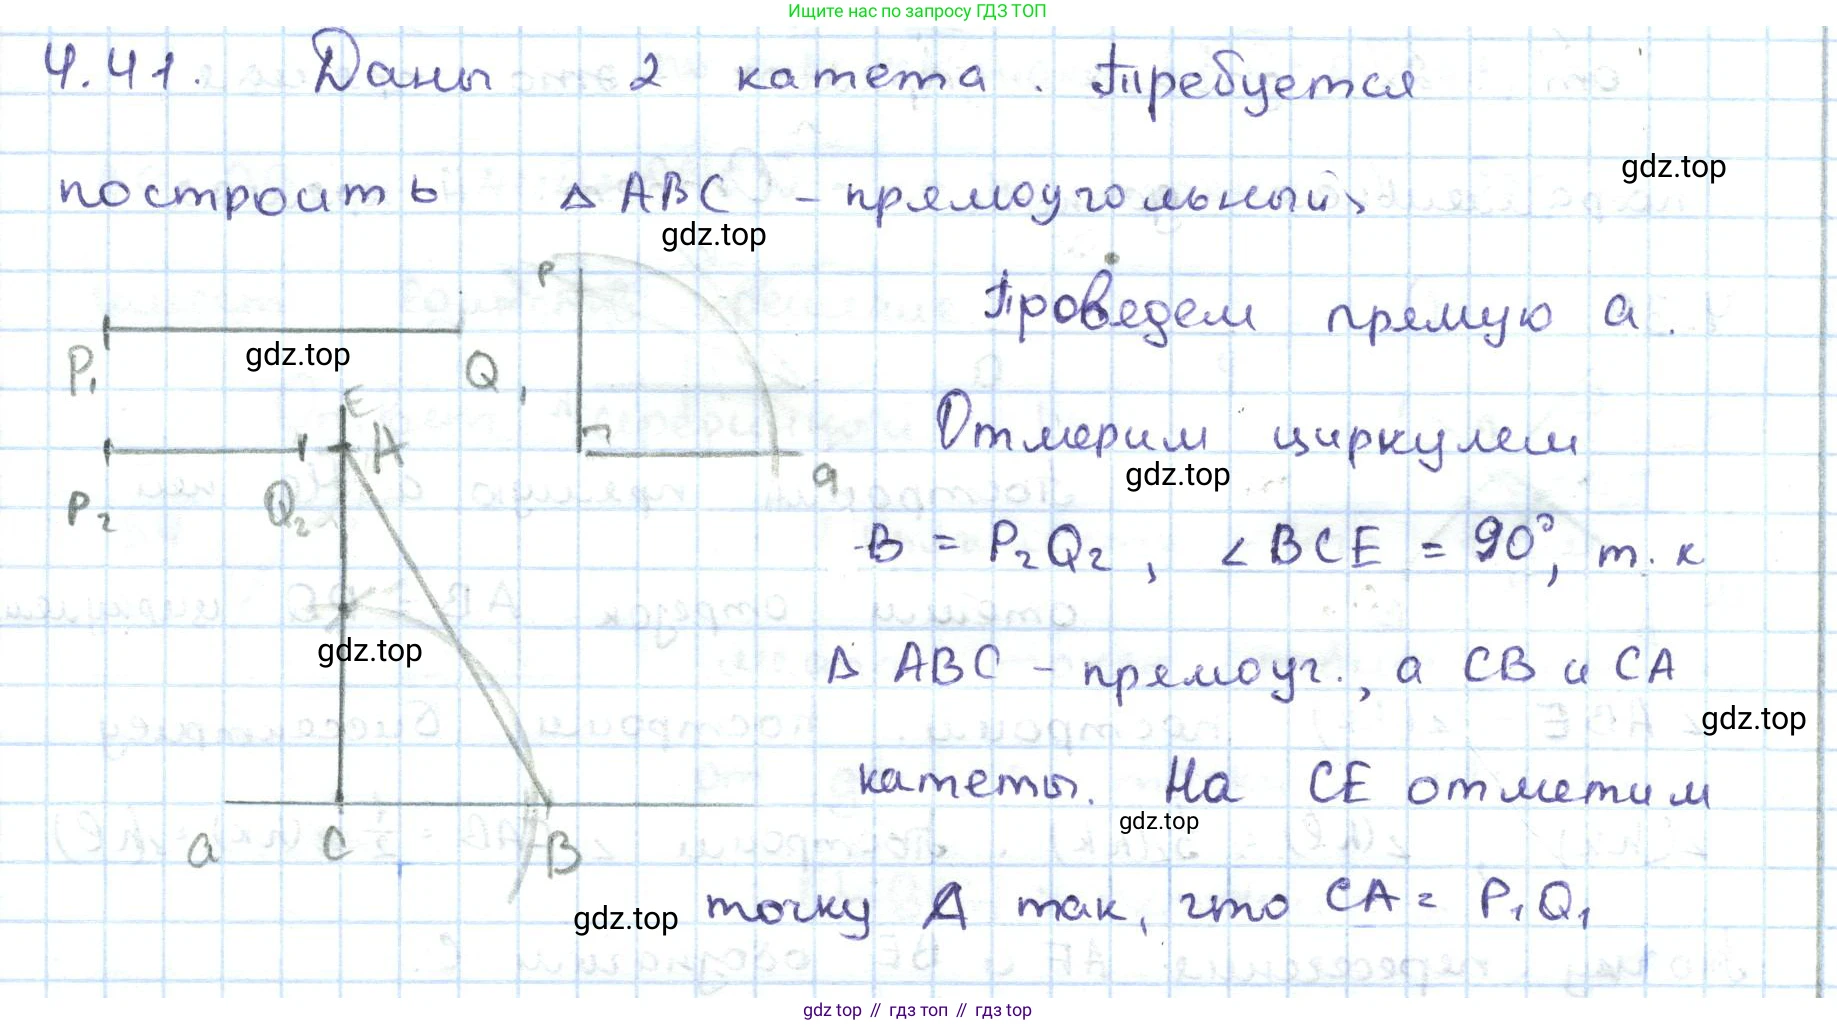 Ищите нас по запросу ГДЗ ТОП
4.41. Даны 2 катета. Требуется
gdz.top
построить △ ABC - прямоугольный
gdz.top
P
Проведем прямую a.
P₁ gdz.top Q₁
E
A
Отмерим циркулем
gdz.top
a
P₂ Q₂
B = P₂Q₂, ∠BCE = 90°, т.к
gdz.top
△ ABC - прямоуг., а CB и CA
gdz.top
катеты. На CE отметим
gdz.top
a C B
gdz.top
точку A так, что CA = P₁Q₁
gdz.top // гдз топ // гдз top